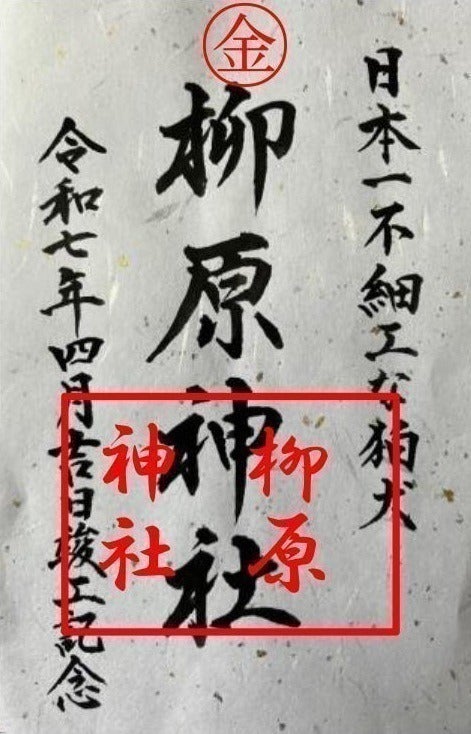 金
日本一不細工な狛犬
柳原神社
柳原
神社
令和七年四月吉日竣工記念